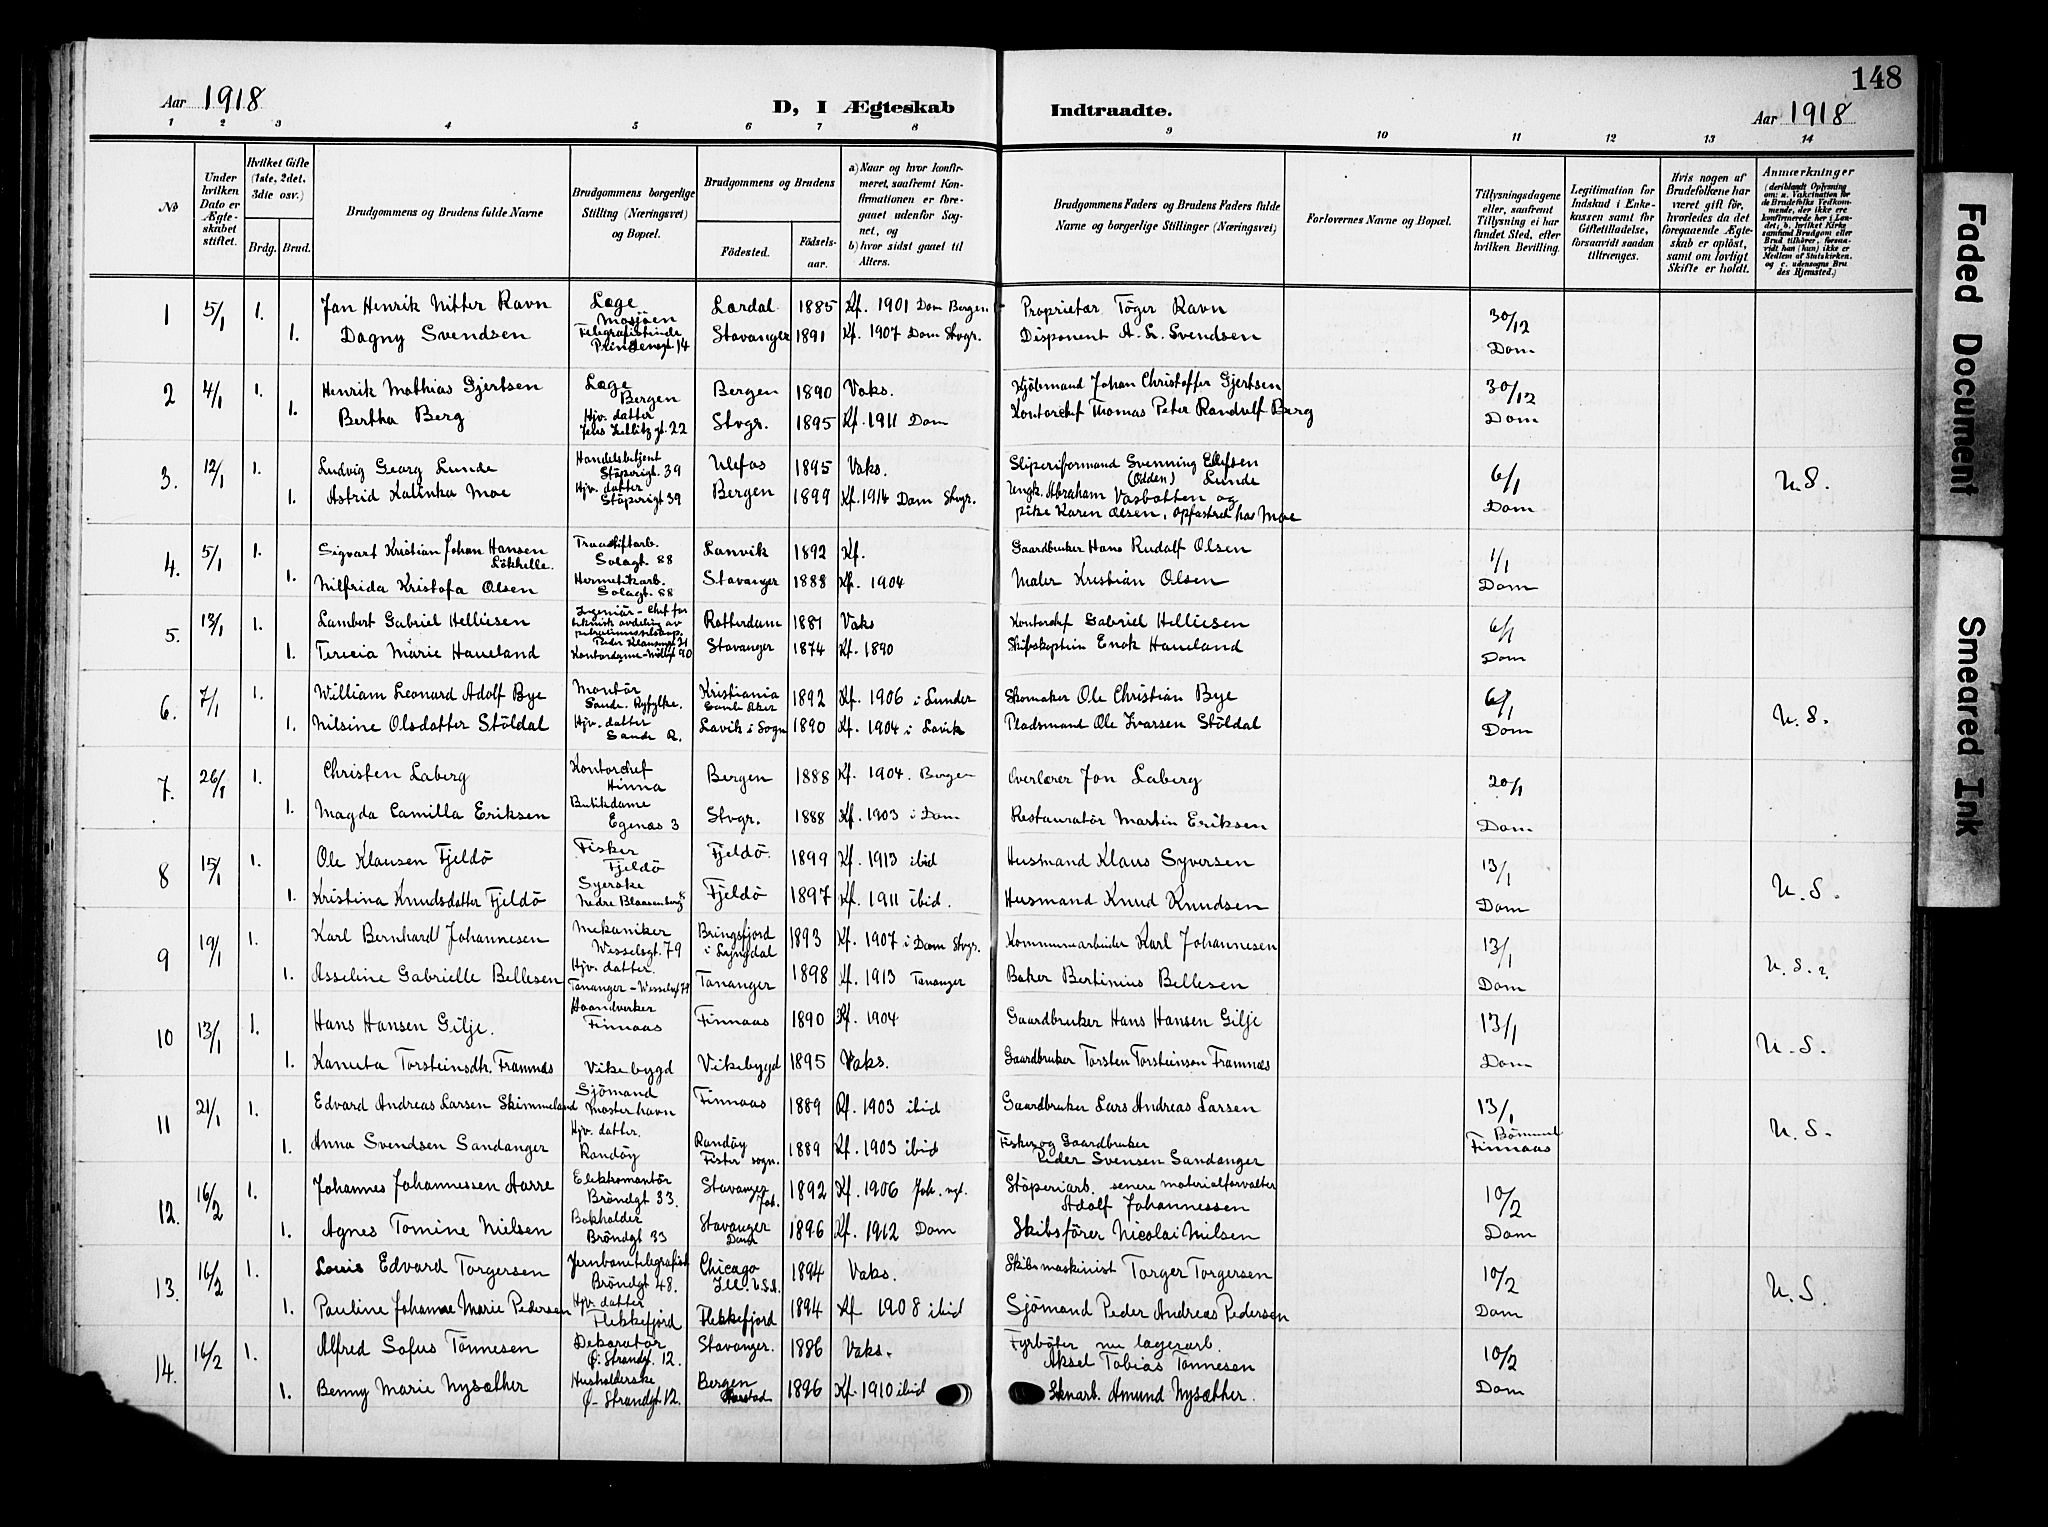 148
Aar 1918
D, I Ægteskab Indtraadte.
Aar 1918
1 2 3 4 5 6 7 8 9 10 11 12 13 14
No
Under hvilken Dato er Ægteskabet stiftet.
Hvilket Gifte (1ste, 2det, 3die osv.)
Brdg. Brud.
Brudgommens og Brudens fulde Navne
Brudgommens borgerlige Stilling (Næringsvei) og Bopæl.
Brudgommens og Brudens
Fødested.
Fødselsaar.
a) Naar og hvor konfirmeret, saafremt Konfirmationen er foregaaet udenfor Sognet, og
b) hvor sidst gaaet til Alters.
Brudgommens Faders og Brudens Faders fulde Navne og borgerlige Stillinger (Næringsvei)
Forlovernes Navne og Bopæl.
Tillysningsdagene eller, saafremt Tillysning ei har fundet Sted, efter hvilken Bevilling.
Legitimation for Indskud i Enkekassen samt for Giftetilladelse, forsaavidt saadan tiltrænges.
Hvis nogen af Brudefolkene har været gift før, hvorledes da det foregaaende Ægteskab er opløst, samt om lovligt Skifte er holdt.
Anmærkninger
(deriblandt Oplysning om: a. Vakcination for de Brudefolks Vedkommende, der ikke ere konfirmerede her i Landet; b. hvilket Kirkesamfund Brudgom eller Brud tilhører, forsaavidt han (hun) ikke er Medlem af Statskirken, og c. udensogns Brudes Hjemsted.)
1 5/1 1. Jan Henrik Nitter Ravn Læge Mosjöen Lærdal 1885 Kf. 1901 Dom Bergen Proprietær Töger Ravn 30/12
1. Dagny Svendsen Telegrafistinde Prinsensgt 14 Stavanger 1891 Kf. 1907 Dom Stvgr. Disponent A. L. Svendsen Dom
2 4/1 1. Henrik Mathias Gjertsen Læge Bergen Bergen 1890 Vaks. Kjöbmand Johan Christoffer Gjertsen 30/12
1. Bertha Berg Hjv. datter Jens Zetlitz gt. 22 Stvgr. 1895 Kf. 1911 Dom Kontorchef Thomas Peter Randulf Berg Dom
3. 12/1 1. Ludvig Georg Lunde Handelsbetjent Stöperigt. 39 Ulefos 1895 Vaks. Sliperiformand Svenning Ellefsen (Odden) Lunde 6/1 U.S.
1. Astrid Kalinka Moe Hjv. datter Stöperigt 39 Bergen 1899 Kf. 1914 Dom Stvgr. Ungk. Abraham Vasbotten og pike Karen Olsen, opfostret hos Moe Dom
4. 5/1 1. Sigvart Kristian Johan Hansen Lökhelle. Solagt. 88 Lanvik 1892 Kf. Gaardbruker Hans Rudolf Olsen 1/1
1. Wilfrida Kristofa Olsen Hermetikarb. Solagt. 88 Stavanger 1888 Kf. 1904 Maler Kristian Olsen Dom
5. 13/1 1. Lambert Gabriel Helliesen Ingeniör - Chef for teknisk avdeling av Rotterdam 1881 Vaks Kontorchef Gabriel Helliesen 6/1
1. Terecia Marie Haueland Stavanger 1874 Kf. 1890 Skibskaptein Enok Haueland Dom
6. 7/1 1. William Leonard Adolf Bye Montör Sande. Ryfylke. Kristiania 1892 Kf. 1906 i Lunder Skomaker Ole Christian Bye 6/1 U.S.
1. Nilsine Olsdatter Stöldal Hjv. datter Sande R. Lavik i Sogn 1890 Kf. 1904 i Lavik Pladsmand Ole Ivarsen Stöldal Dom
7. 26/1 1. Christen Laberg Kontorchef Hinna Bergen 1888 Kf. 1904. Bergen Overlærer Jon Laberg 20/1
1. Magda Camilla Eriksen Butikdame Egenæs 3 Stvgr. 1888 Kf. 1903 i Dom Restauratör Martin Eriksen Dom
8 15/1 1. Ole Klausen Fjeldö Fisker Fjeldö Fjeldö. 1899 Kf. 1913 ibid Husmand Klaus Syversen 13/1 U.S.
1. Kristina Knudsdatter Fjeldö Syerske Nedre Blaasenberg Fjeldö 1897 Kf. 1911 ibid. Husmand Knud Knudsen Dom
9 19/1 1. Karl Bernhard Johannesen Mekaniker Wesselsgt. 79 Bringsfjord i Lyngdal 1893 Kf. 1907 i Dom Stvgr. Kommunearbeider Karl Johannesen 13/1 U.S.?
1. Asseline Gabrielle Bellesen Hjv. datter. Tananger - Wesselsgt 79 Tananger 1898 Kf. 1913 Tananger Baker Bertinius Bellesen Dom
10 13/1 1. Hans Hansen Gilje. Haandverker Finnaas Finnaas 1890 Kf. 1904 Gaardbruker Hans Hansen Gilje 13/1 U.S.
1. Kanuta Torsteinsdtr. Framnæs Vikebygd Vikebygd 1895 Vaks. Gaardbruker Torsten Torsteinson Framnæs Dom
11 21/1 1. Edvard Andreas Larsen Skimmeland Sjömand Mosterhavn Finnaas 1889 Kf. 1903 ibid Gaardbruker Lars Andreas Larsen 13/1 U.S.
1. Anna Svendsen Sandanger Hjv. datter. Randöy Randöy Fister sogn. 1889 Kf. 1903 ibid Fisker og Gaardbruker Peder Svensen Sandanger Bömmel Finnaas
12. 16/2 1. Johannes Johannessen Aarre Elektromontör Bröndgt 33. Stavanger Joh. 1892 Kf. 1906 Joh. Stöperiarb. senere materialforvalter Adolf Johannessen 10/2
1. Agnes Tomine Nielsen Bokholder Bröndgt 33 Stavanger Dom 1896 Kf. 1912 Dom Skibsförer Nicolai Nielsen Dom
13. 16/2 1. Louis Edvard Torgersen Jernbanetelegrafist Bröndgt 48. Chicago Ill. U.S.A. 1894 Vaks. Skibsmaskinist Torger Torgersen 10/2 U.S.
1. Pauline Johanne Marie Pedersen Hjv. datter Flekkefjord Flekkefjord 1894 Kf 1908 ibid Sjömand Peder Andreas Pedersen Dom
14. 16/2 1. Alfred Sofus Tönnesen Dekoratör Ö. Strandgt. 12. Stavanger. 1886 Vaks. Fyrböter nu lagerarb. Aksel Tobias Tönnesen 10/2
1. Benny Marie Nysæther Husholderske Ø- Strandgt 12. Bergen Aarstad 1896 Kf. 1910 ibid Amund Nysæther. Dom
Faded Document
Smeared Ink